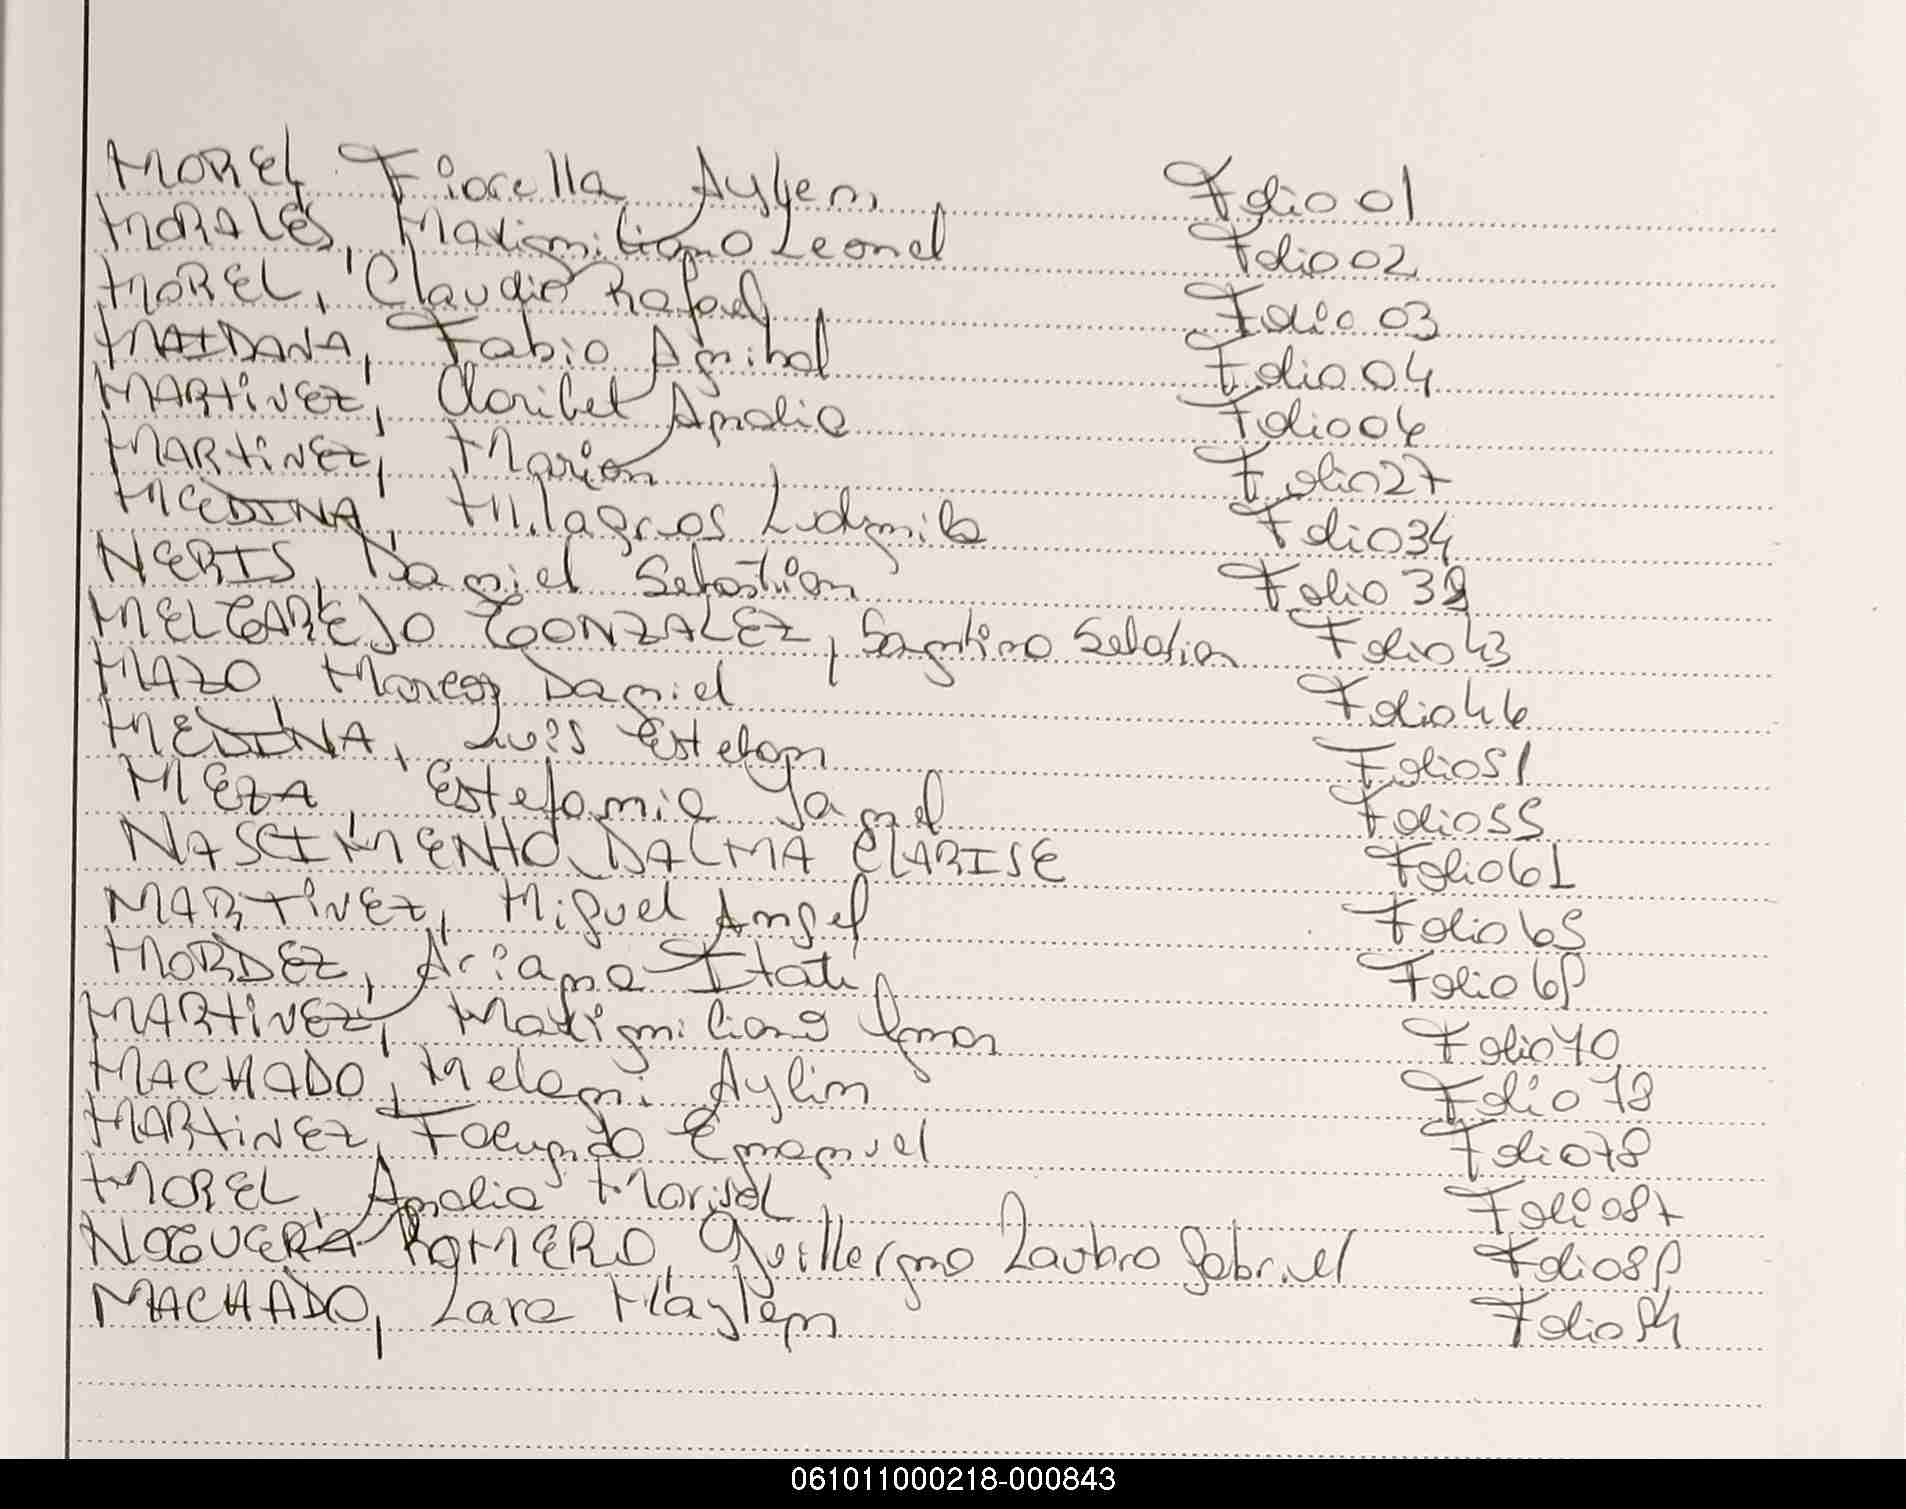 MOREL Fiorella Aylem Folio 01
MORALES, Maximiliano Leonel Folio 02
MOREL, Claudio Rafael Folio 03
MAIDANA, Fabio Anibal Folio 04
MARTINEZ, Claribel Analia Folio 06
MARTINEZ, Marion Folio 27
MEDINA, Milagros Ludmila Folio 34
NERIS, Daniel Sebastian Folio 38
MELGAREJO GONZALEZ, Santino Sebatian Folio 43
MAZO, Marcos Daniel Folio 46
MEDINA, Luis Esteban Folio 51
MEZA, Estefania Yanel Folio 55
NASCIMENTO, DALMA CLARISE Folio 61
MARTINEZ, Miguel Angel Folio 65
MORDEZ, Ariana Itati Folio 69
MARTINEZ, Maximiliano Folio 70
MACHADO, Melani Aylin Folio 78
MARTINEZ, Facundo Emanuel Folio 78
MOREL, Analia Marisol Folio 87
NOGUERA ROMERO, Guillermo Lautaro Gabriel Folio 89
MACHADO, Lara Maylen Folio 94
061011000218-000843